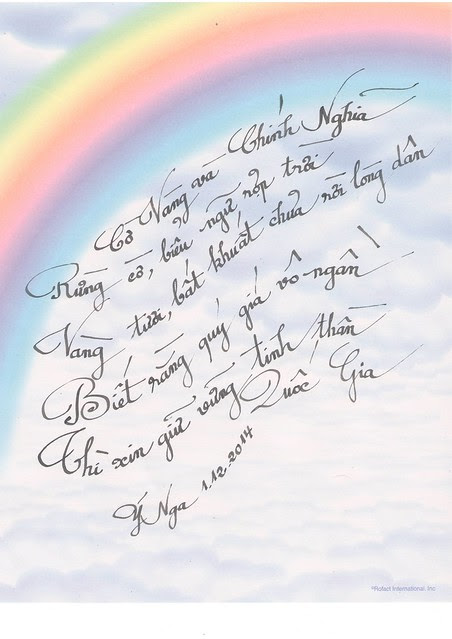 Cờ Vàng và Chính Nghĩa
Rừng cờ, biểu ngữ rợp trời
Vàng tươi, bất khuất chưa rời lòng dân
Biết rằng quý giá vô-ngần
Thì xin giữ vững tinh thần
Quốc Gia
Ý Nga 1.12.2014
®Rofact International, Inc